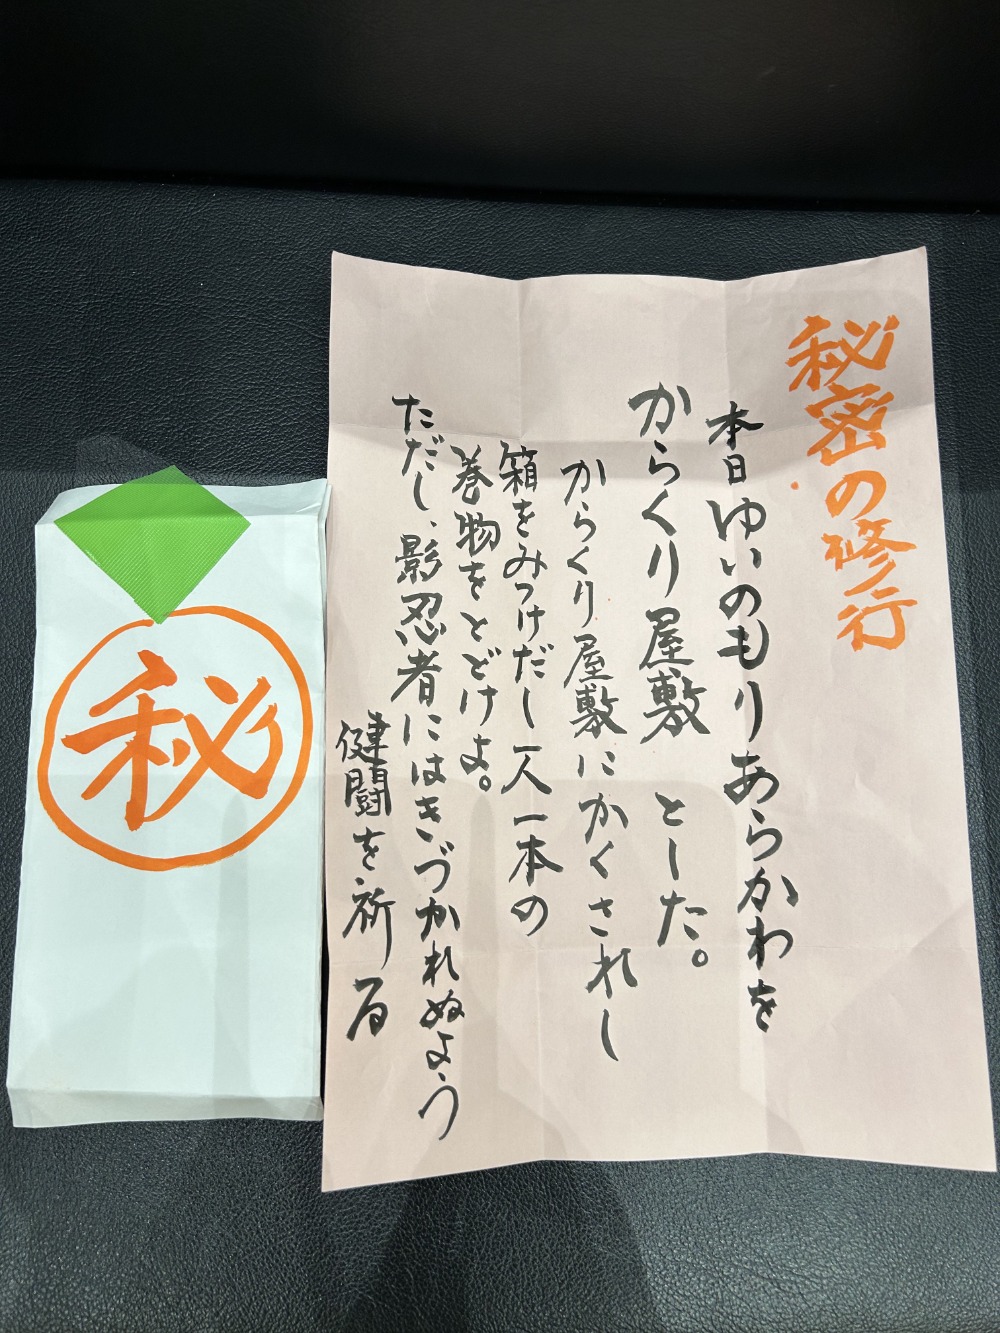 秘密の修行
本日ゆいのもりあらかわを
からくり屋敷 とした。
からくり屋敷にかくされし
箱をみつけだし一人一本の
巻物をとどけよ。
ただし、影忍者にはきづかれぬよう
健闘を祈る
秘